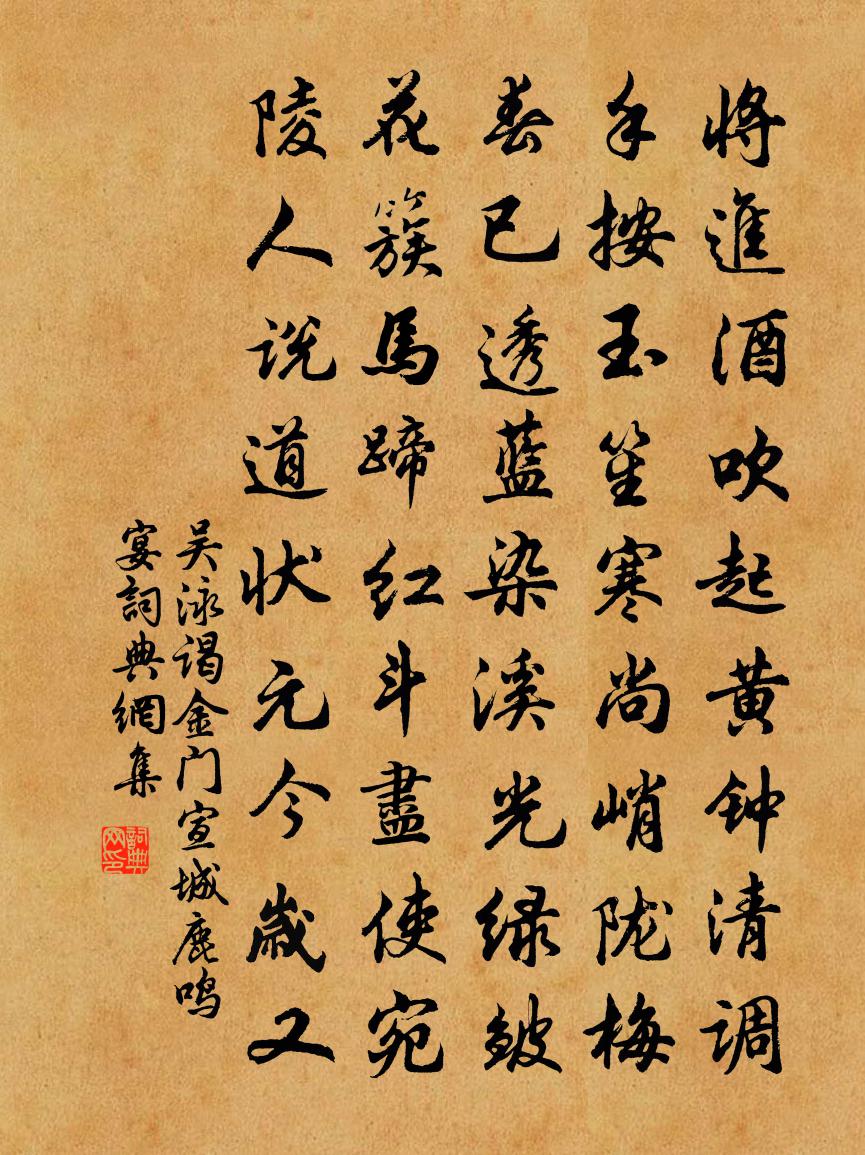 将進酒吹起黄钟清调
手按玉笙寒尚峭陇梅
春已透蓝染溪光绿皱
花簇馬蹄红斗盡使宛
陵人说道状元今歲又
吴泳谒金门宣城鹿鸣
宴詞典網集
詞典网印